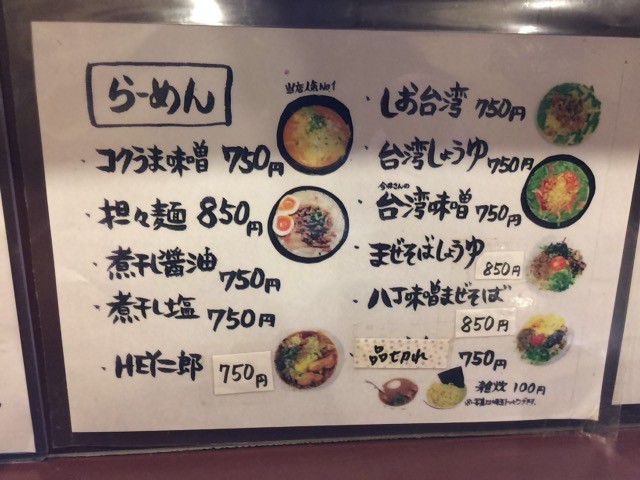 らーめん
当店人気No1
・コクうま味噌 750円
・担々麺 850円
・煮干し醤油 750円
・煮干し塩 750円
・HEY二郎 750円
・しお台湾 750円
・台湾しょうゆ 750円
・台湾味噌 750円
・まぜそばしょうゆ 850円
・八丁味噌まぜそば 850円
・品切れ 750円
雑炊 100円